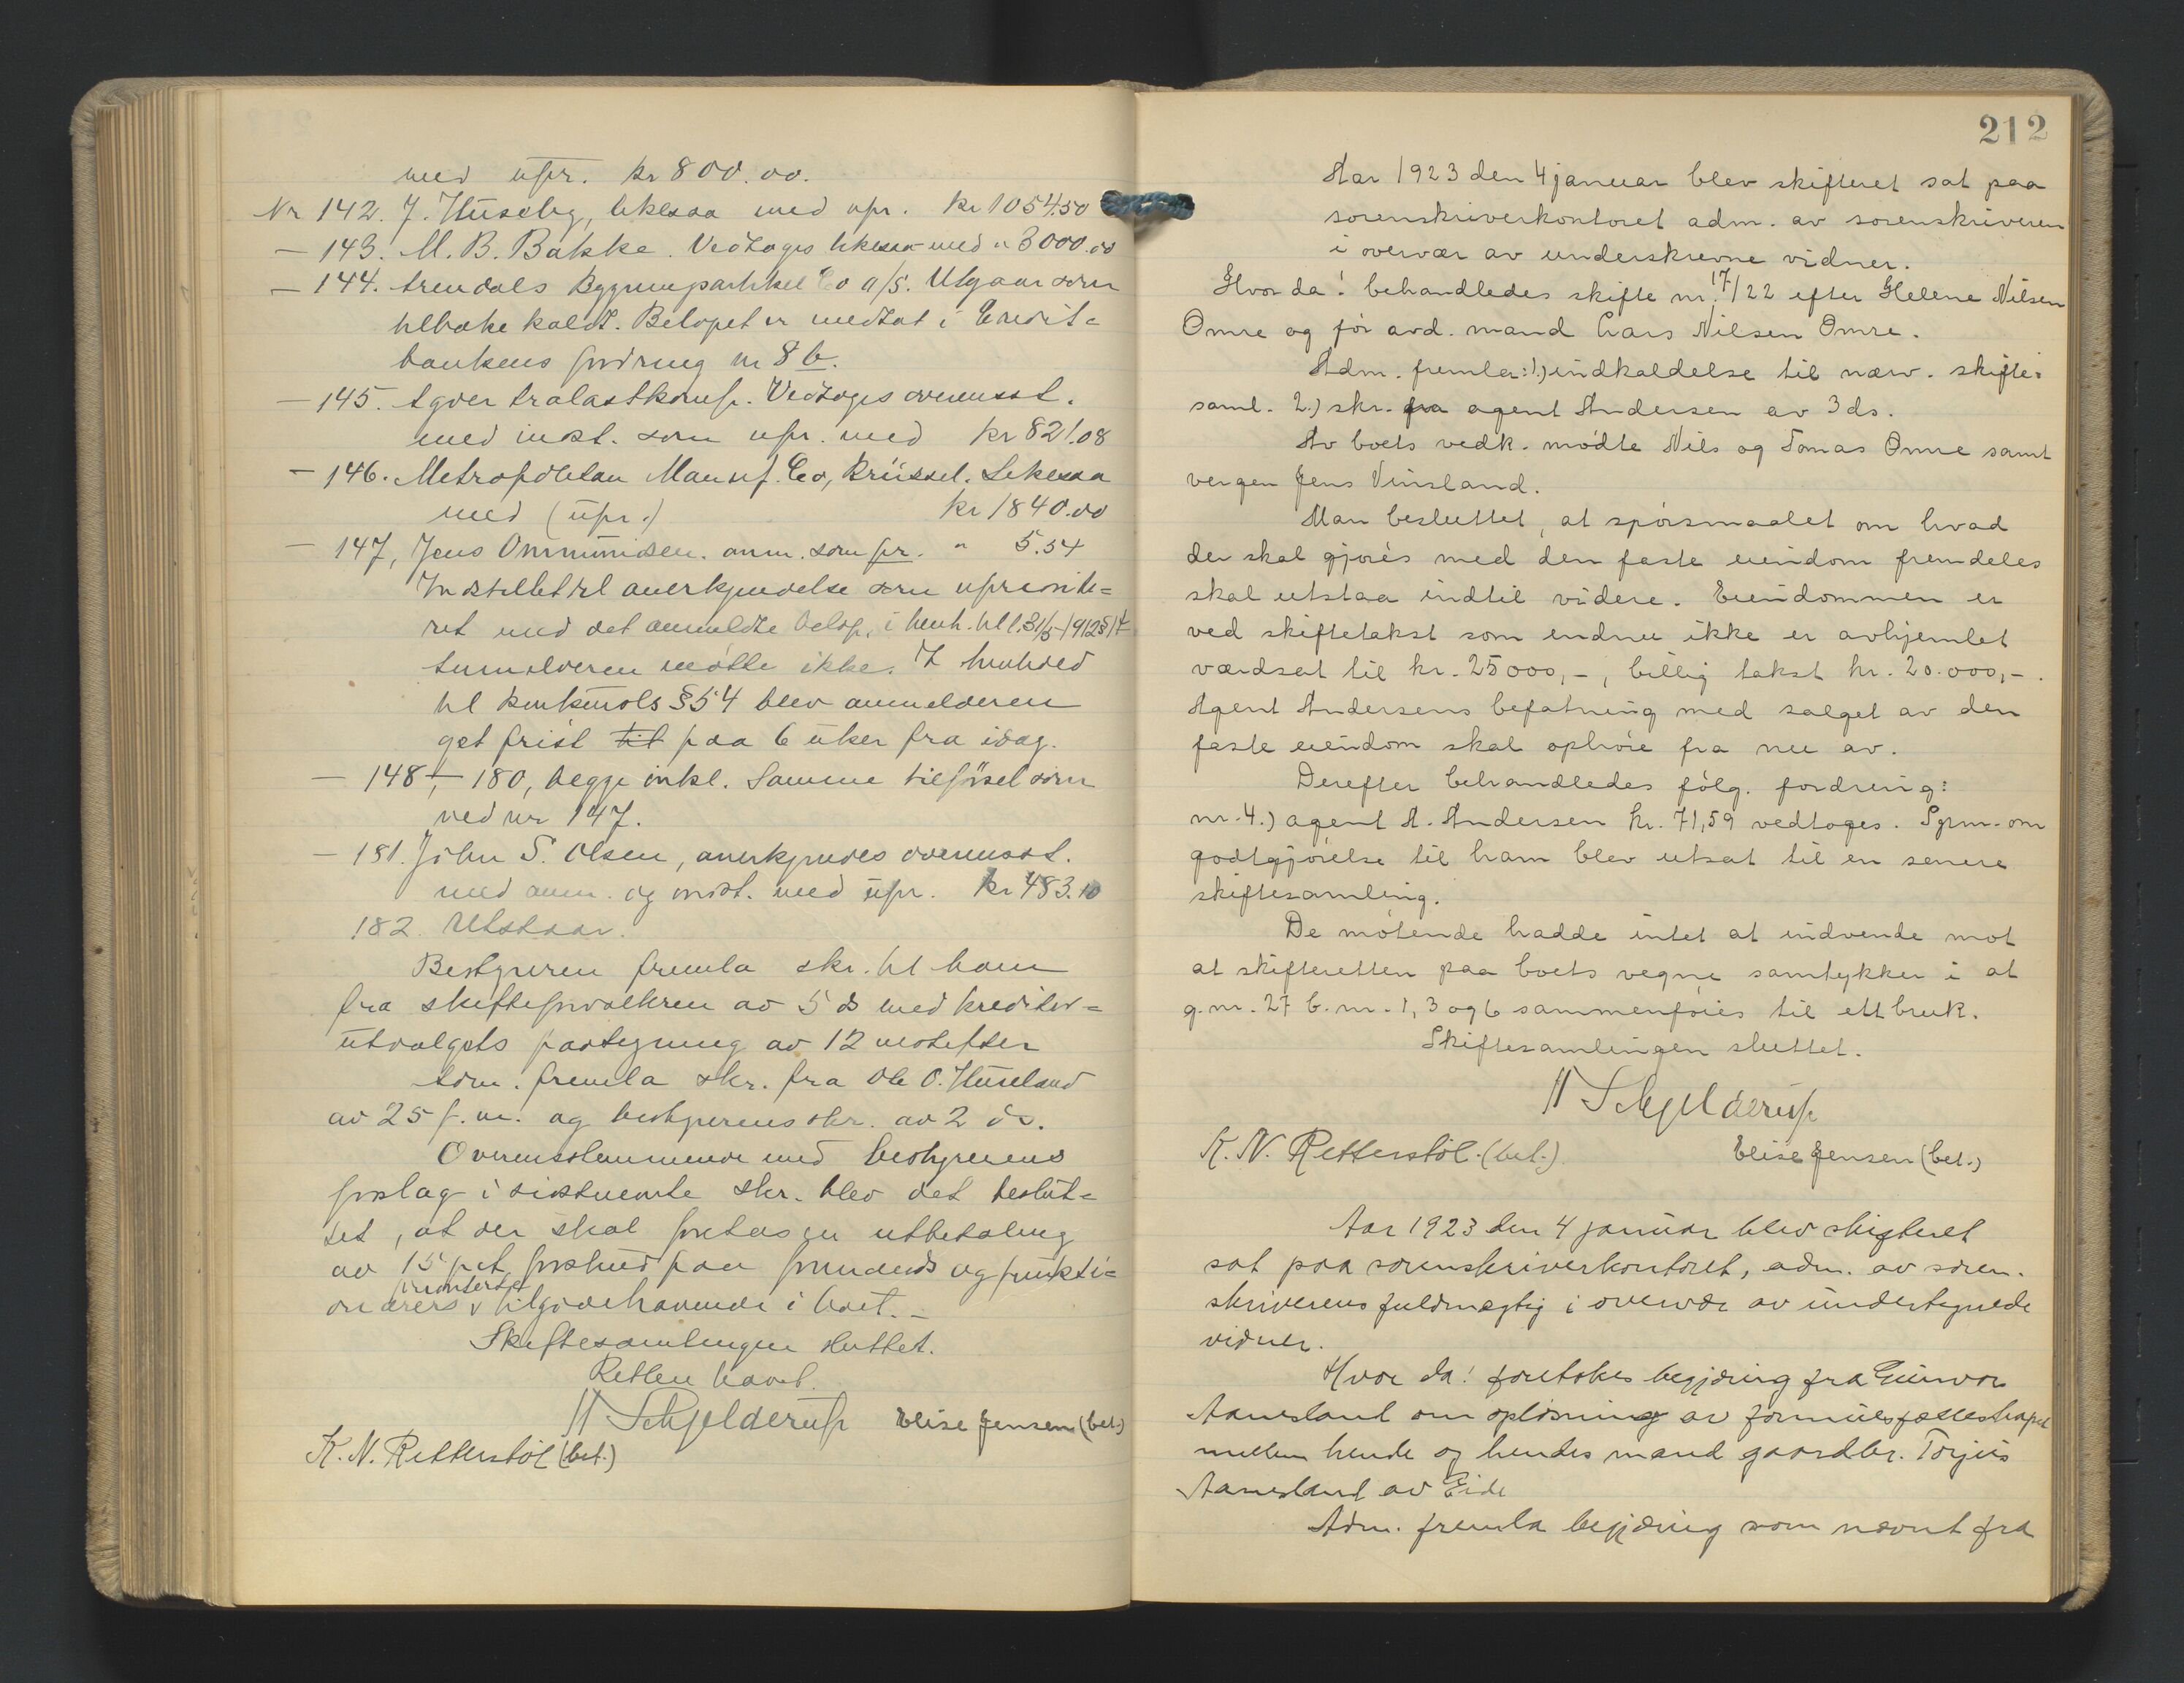 med upr. kr 800.00.
Nr 142. J. Huseby, likesaa med upr. kr 1054.50
— 143. M. B. Bakke. Vedtoges likesaa med " 3000.00
— 144. Arendals Bygningsartikel Co a/s. Utgaar som
tilbakekaldt. Beløpet er medtat i Credit=
bankens fordring nr 8 b.
— 145. Agder trælastkomp. Vedtoges overensst.
med inst. som upr. med kr 821.08
— 146. Metropolitan Manuf. Co, Brüssel. Likesaa
med (upr.) kr 1840.00
— 147, Jens Ommundsen. anm. som pr. " 5.54
Instillet til anerkjendelse som upriorite=
ret med det anmeldte beløp, i henh. til l. 31/5 1912 § 14
Anmelderen møtte ikke. I henhold
til konkursls § 54 blev anmelderen
get frist til paa 6 uker fra idag.
— 148 – 180, begge inkl. Samme tilførsel som
ved nr 147.
— 181. John S. Olsen, anerkjendes overensst.
med anm. og inst. med upr. kr 483.10
182. Utstaar.
Bestyreren fremla skr. til ham
fra skifteforvalteren av 5 ds med kreditor=
utvalgets paategning av 12 nestefter
Adm. fremla skr. fra Ole O. Huseland
av 25 f. m. og bestyrerens skr. av 2 ds.
Overensstemmende med bestyrerens
forslag i sistnevnte skr. blev det beslut=
tet, at der skal foretas en utbetaling
av 15 pct. forskud paa formænds og funkti=
prioriterte
onærers v tilgodehavende i boet. –
Skiftesamlingen sluttet.
Retten hævet.
H Schjelderup Elise Jensen (bet.)
K. N. Retterstöl (bet.)
212
Aar 1923 den 4 januar blev skifteret sat paa
sorenskriverkontoret adm. av sorenskriveren
i overvær av underskrevne vidner.
Hvor da: behandledes skifte nr. 17/22 efter Helene Nilsen
Omre og før avd. mand Lars Nilsen Omre.
Adm. fremla: 1.) indkaldelse til nærv. skifte=
saml. 2.) skr. fra agent Andersen av 3 ds.
Av boets vedk. mødte Nils og Tomas Omre samt
vergen Jens Vinsland.
Man besluttet, at spørsmaalet om hvad
der skal gjøres med den faste eiendom fremdeles
skal utstaa indtil videre. Eiendommen er
ved skiftetakst som endnu ikke er avhjemlet
værdsat til kr. 25000,-, billig takst kr. 20.000,-.
Agent Andersens befatning med salget av den
faste eiendom skal ophøre fra nu av.
Derefter behandledes følg. fordring:
nr. 4.) agent A. Andersen kr. 71,59 vedtoges. Spm. om
godtgjørelse til ham blev utsat til en senere
skiftesamling.
De møtende hadde intet at indvende mot
at skifteretten paa boets vegne samtykker i at
g.nr. 27 b.nr. 1, 3 og 6 sammenføies til ett bruk.
Skiftesamlingen sluttet.
H Schjelderup
K. N. Retterstöl. (bet.) Elise Jensen (bet.)
Aar 1923 den 4 januar blev skifteret
sat paa sorenskriverkontoret, adm. av soren.
skriverens fuldmægtig i overvær av undertegnede
vidner.
Hvor da: foretokes begjæring fra Gunvor
Aanesland om opløsning av formuesfællesskapet
mellem hende og hendes mand gaardbr. Torjus
Aanesland av Eide
Adm. fremla begjæring som nævnt fra